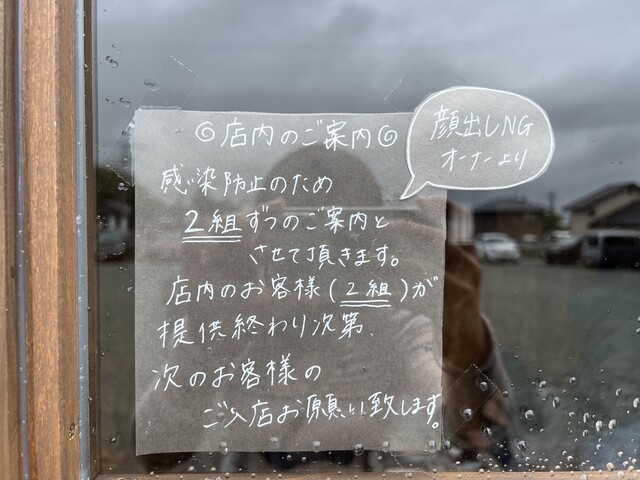 ◎店内のご案内◎
顔出しNG
オーナーより
感染防止のため
2組ずつのご案内と
させて頂きます。
店内のお客様(2組)が
提供終わり次第、
次のお客様の
ご入店お願い致します。